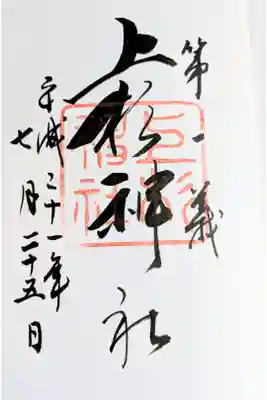 第一義
上杉神社
平成二十一年
七月二十五日